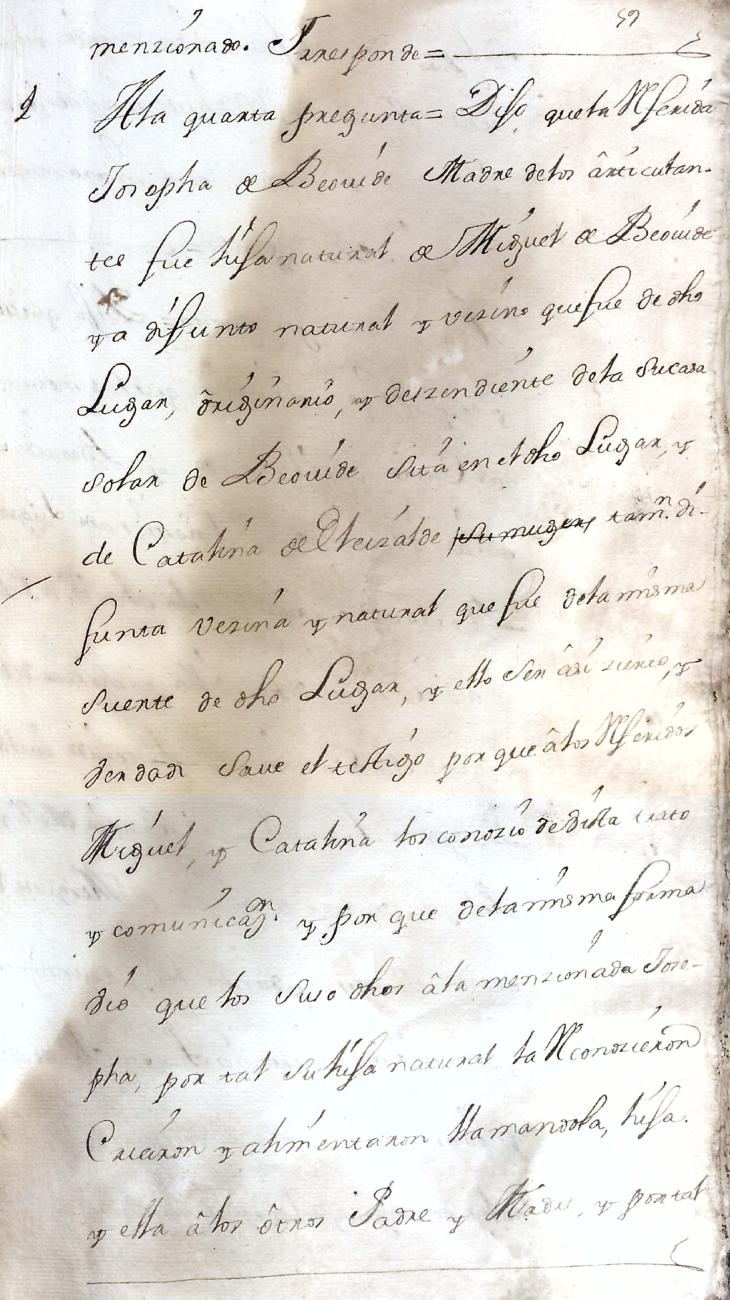 59
menzionado. Y rresponde=
4 A la quarta pregunta= Dijo que la Rferida
Josepha de Beovide Madre de los articulan-
tes fue hija natural de Miguel de Beovide
ya difunto natural y vezino que fue de dho
Lugar, originario, y deszendiente de la su casa
solar de Beovide sita en el dho Lugar, y
de Catalina de Eleizalde su muger, tamn. di-
funta vezina y natural que fue de la misma
suerte de dho Lugar, y ello ser asi zierto, y
verdad save el testigo por que a los Rferidos
Miguel, y Catalina los conozio de vista trato
y comunicazon. y por que de la misma forma
vio que los suso dhos a la menzionada Jose-
pha, por tal su hija natural la Rconozieron
Criaron y alimentaron llamandola, hija.
y ella a los otros Padre y Madre, y por tal